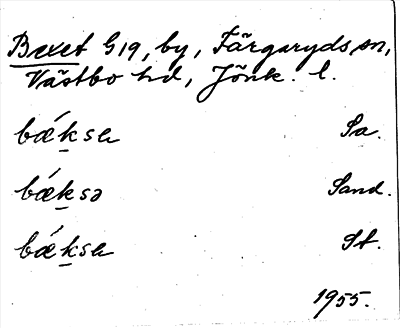 Bexet G19, by, Färgaryds sn,
Västbo hd, Jönk. l.
bǽk̲sa Sa.
bǽk̲sə Sand.
bǽk̲sa St.
1955.